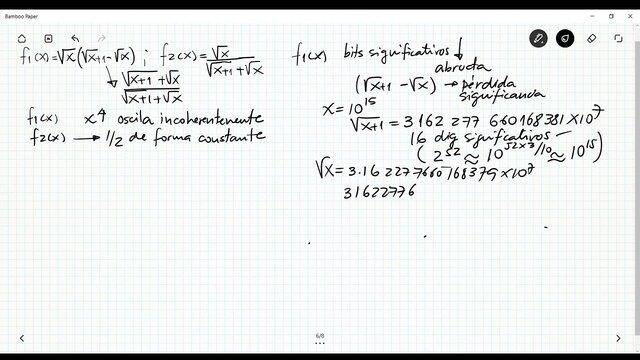 Bamboo Paper
f1(x)=√x(√x+1-√x) ; f2(x)=√x/(√x+1+√x)
(√x+1+√x)/(√x+1+√x)
f1(x) x↑ oscila incoherentemente
f2(x) → 1/2 de forma constante
f1(x) bits significativos ↓
abrupta
(√x+1-√x) → pérdida
significancia
x=10^15
√x+1 = 3 162 277 660 168 381 x10^7
16 dig significativos
(2^52 ≈ 10^52x3/10 ≈ 10^15)
√x = 3.16 2277660168379 x10^7
31622776
6/8